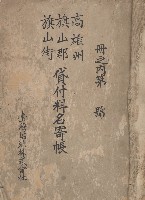 冊之内第 號
高雄州
旗山郡
旗山街
貸付料名寄帳